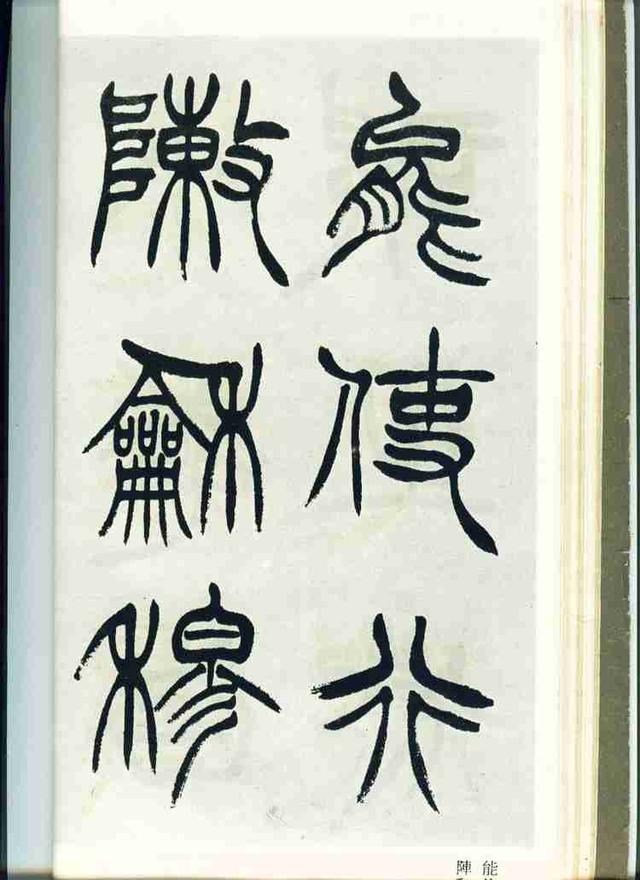 能使行
陣龢穆
能
陣